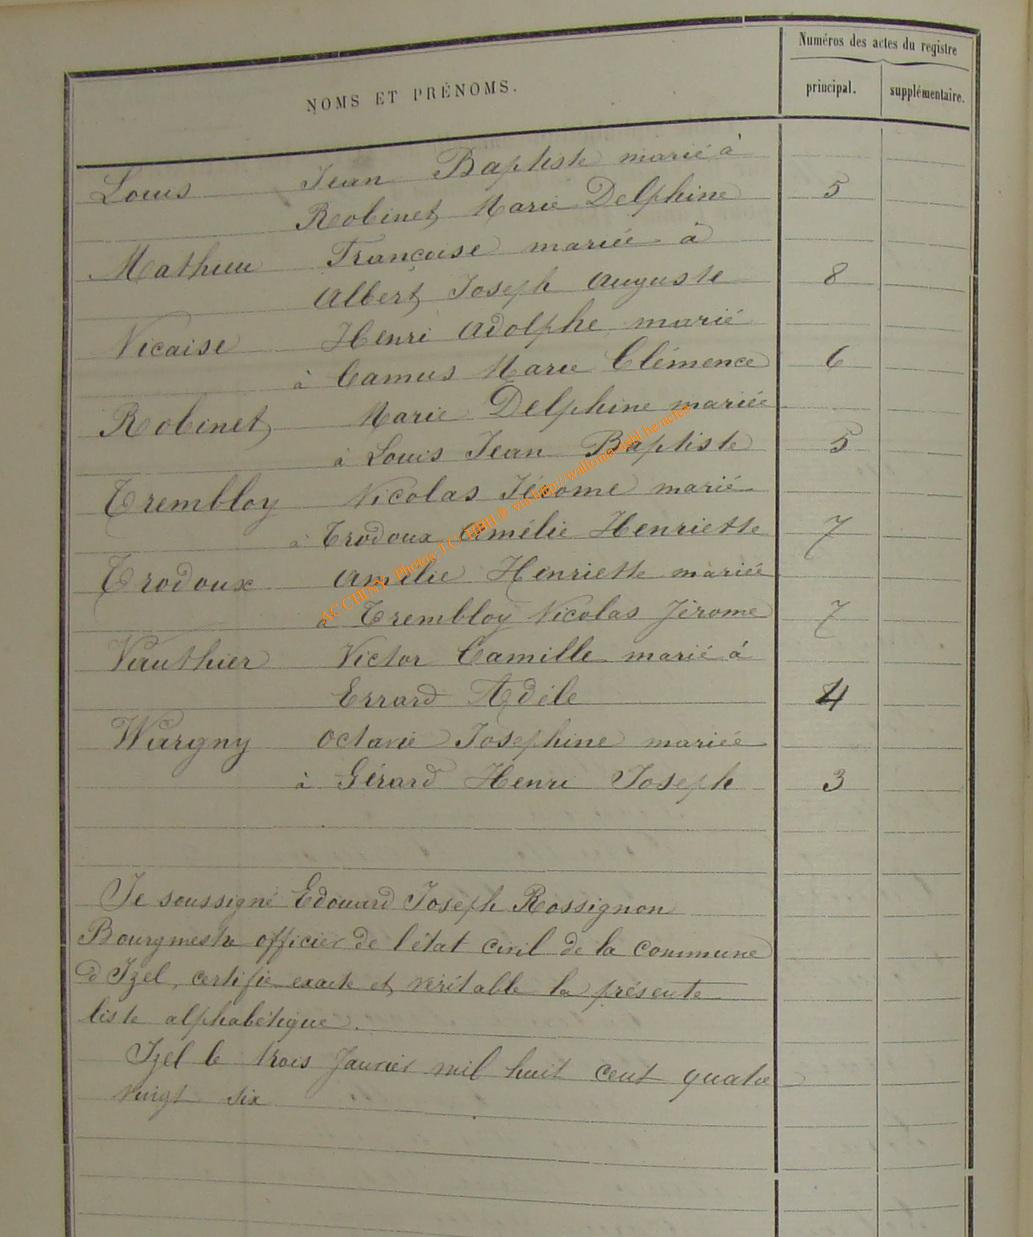 Numéros des actes du registre
NOMS ET PRÉNOMS.
principal.
supplémentaire.
Louis Jean Baptiste marié à
Robinet Marie Delphine 5
Mathieu Francoise mariée à
Albert Joseph Auguste 8
Nicaise Henri Adolphe marié
à Camus Marie Clémence 6
Robinet Marie Delphine mariée
à Louis Jean Baptiste 5
Trembloy Nicolas Jérome marié
à Trodoux Amélie Henriette 7
Trodoux Amélie Henriette mariée
à Trembloy Nicolas Jérome 7
Vauthier Victor Camille marié à
Errard Adèle 4
Wargny Octavie Josephine mariée
à Gérard Henri Joseph 3
Je soussigné Edouard Joseph Rossignon
Bourgmestre officier de l'état civil de la commune
d'Izel, certifie exacte et véritable la présente
liste alphabétique.
Izel le trois Janvier mil huit cent quatre
vingt six